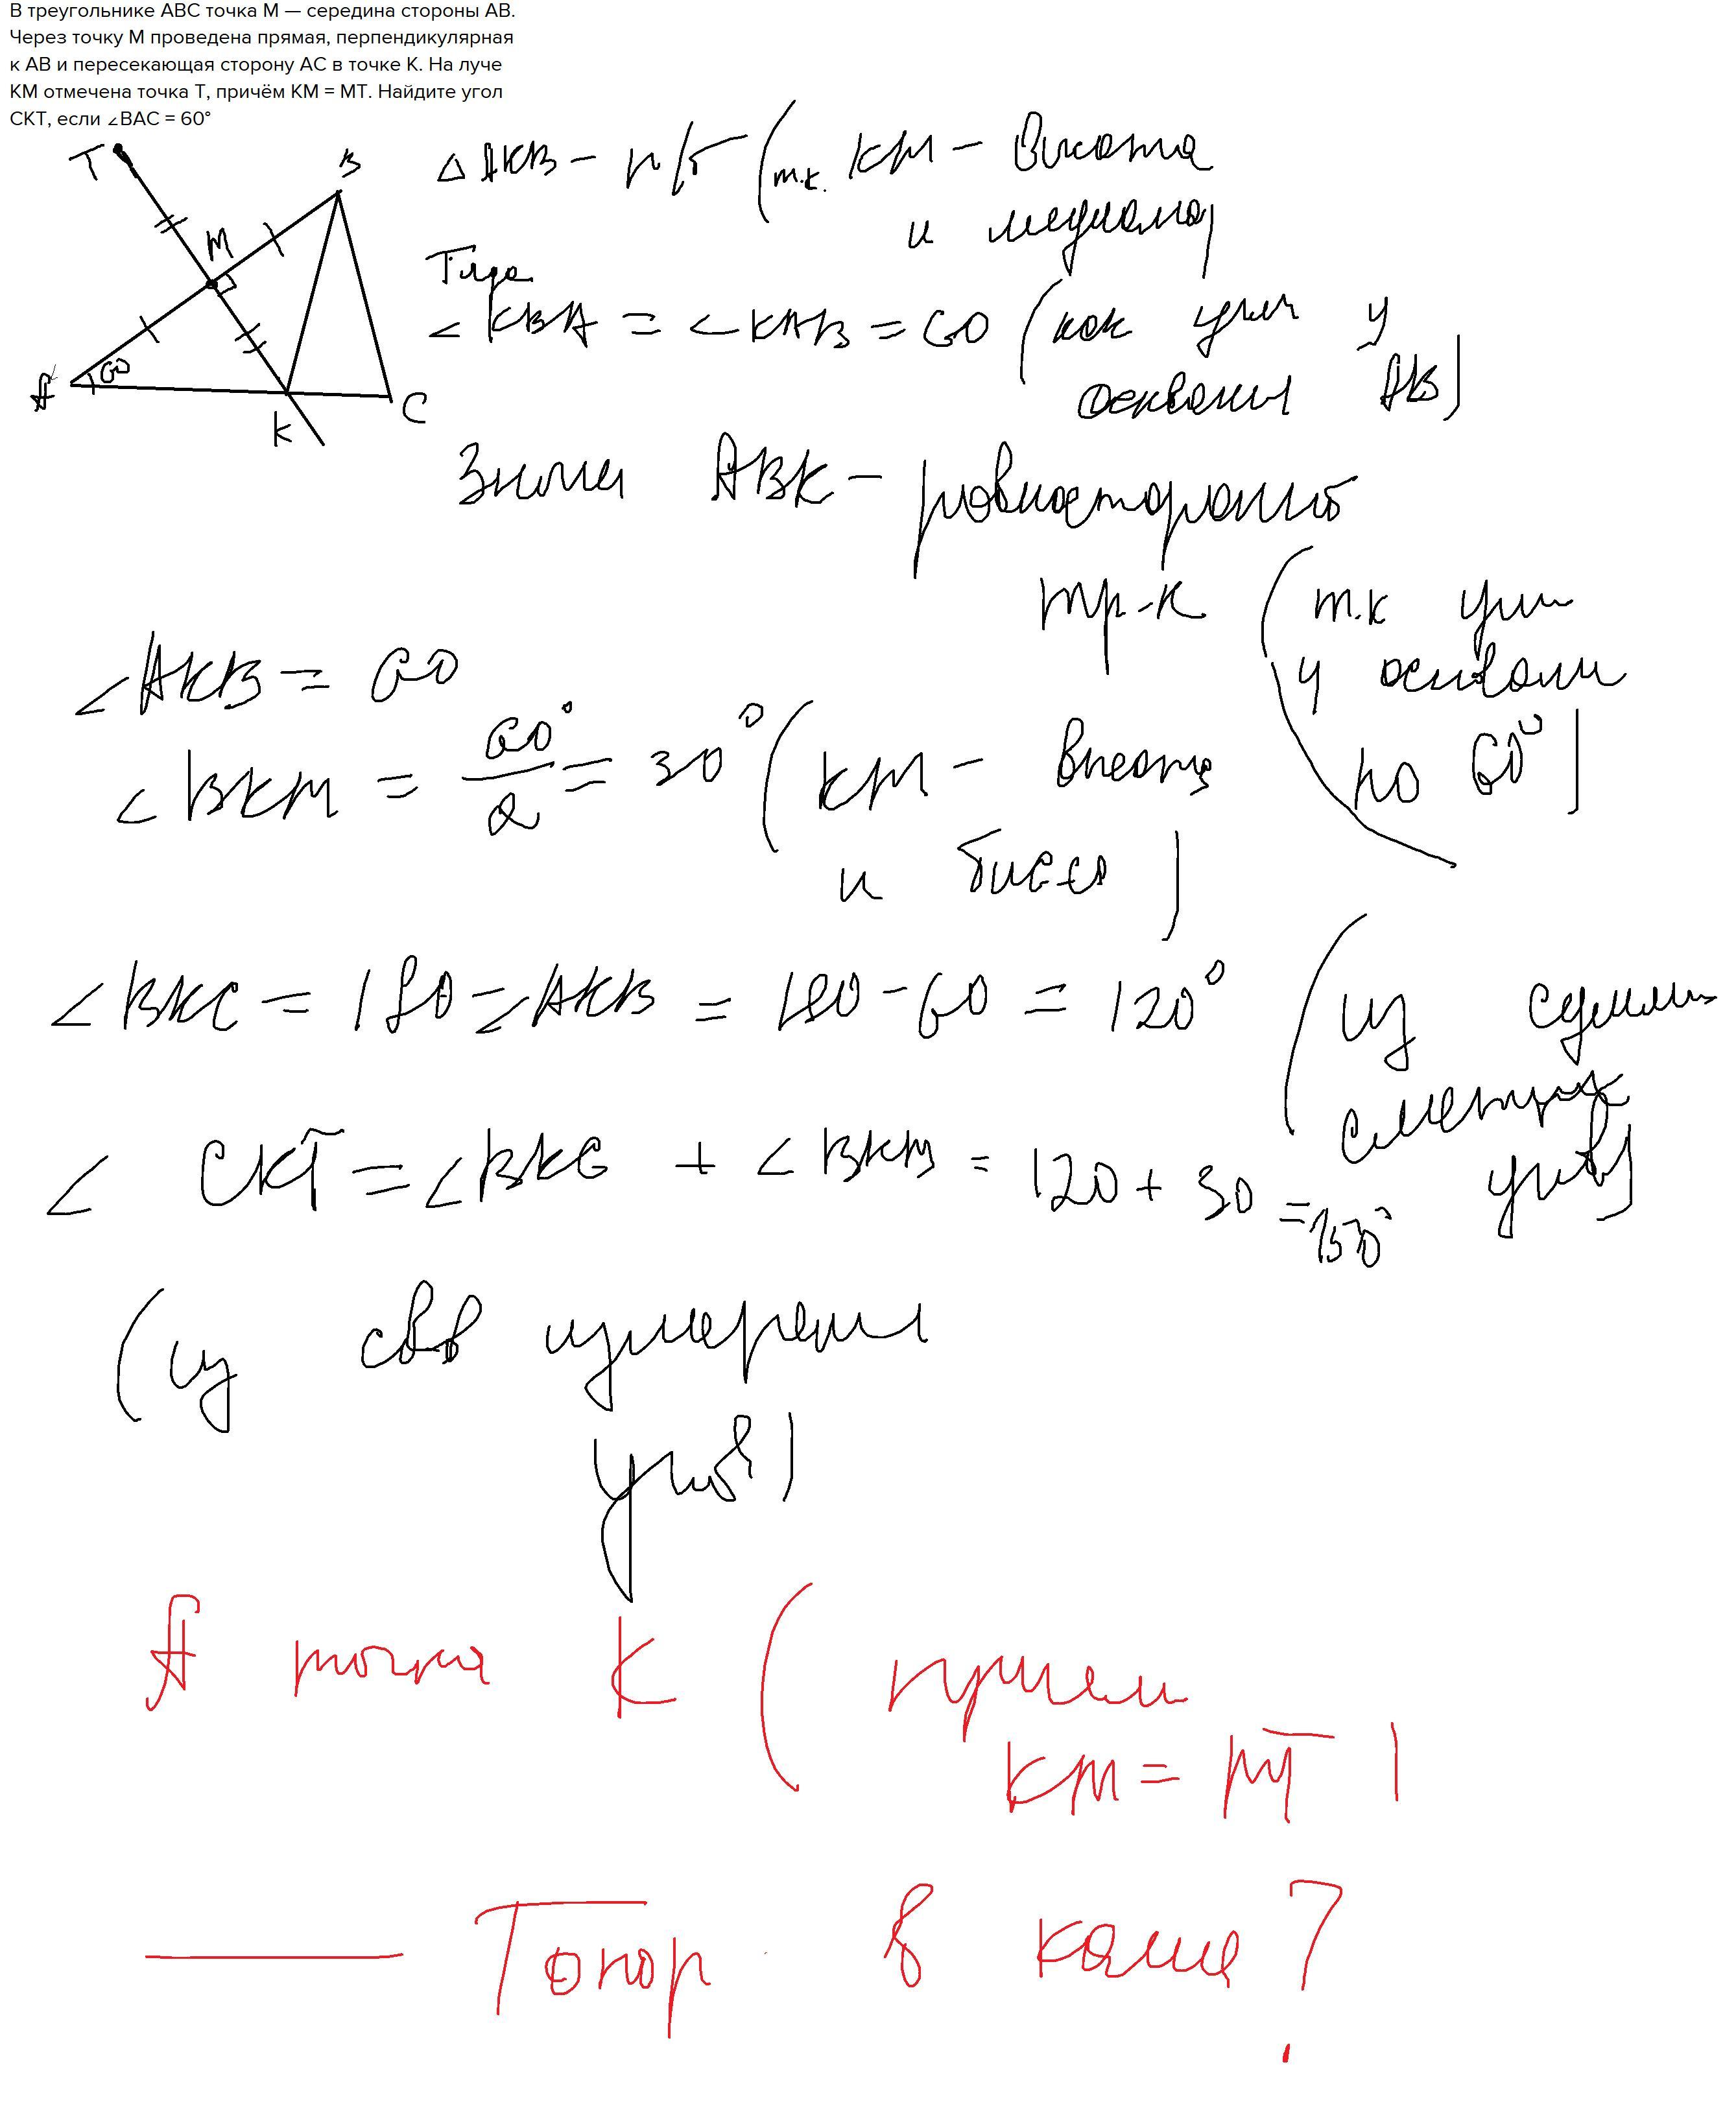 В треугольнике ABC точка M — середина стороны AB.
Через точку M проведена прямая, перпендикулярная
к AB и пересекающая сторону AC в точке K. На луче
KM отмечена точка T, причём KM = MT. Найдите угол
CKT, если ∠BAC = 60°
T
B
M
A
60
K
C
△ AKB – р/б (т.к. KM – высота
и медиана)
Тогда
∠KBA = ∠KAB = 60 (как углы у
основания AB)
Значит ABK – равносторонний
тр-к (т.к углы
у основания
по 60°)
∠AKB = 60
∠BKM = 60°/2 = 30° (KM – высота
и бисс-са)
∠BKC = 180 - ∠AKB = 180 - 60 = 120° (из суммы
смежных
углов)
∠CKT = ∠BKC + ∠BKM = 120 + 30 = 150°
(из св-в измерения
углов)
А точка K (причем
KM = MT)
— Топор в каше?